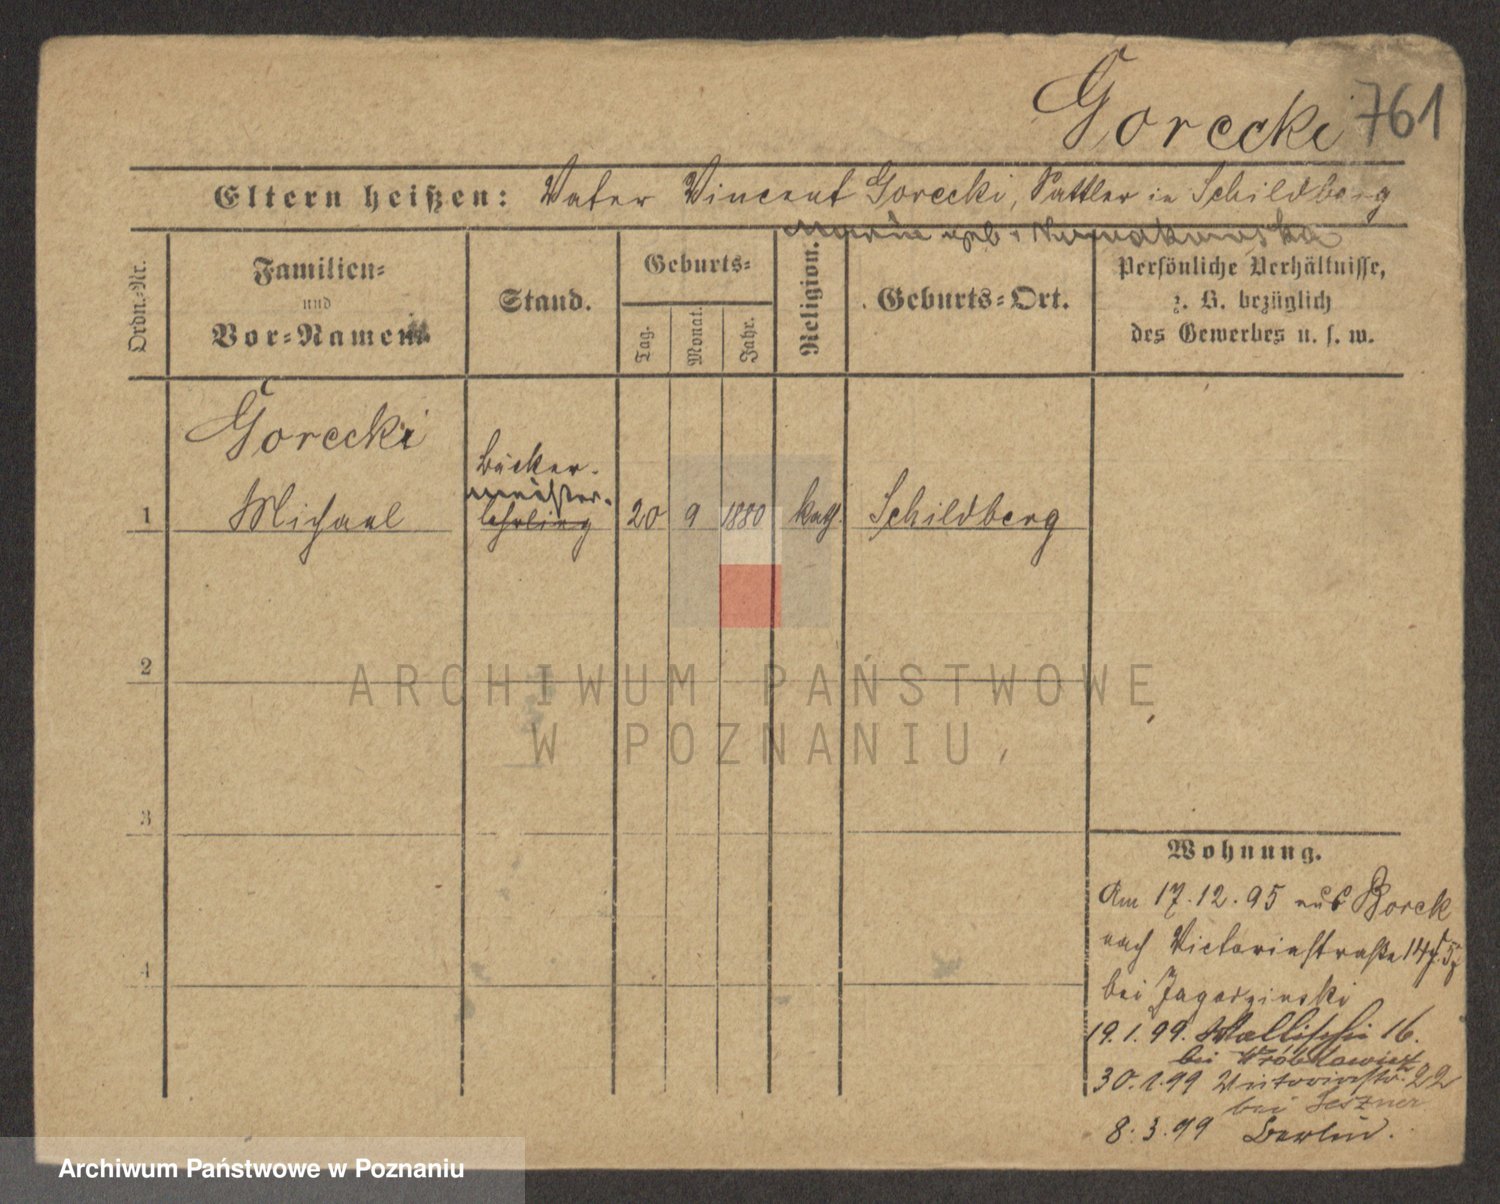 Gorecki 761
Eltern heißen: Vater Vincent Gorecki, Sattler in Schildberg
Marie geb.
Ordn.-Nr.
Familien-
und
Vor-Namen
Stand.
Geburts-
Tag.
Monat.
Jahr.
Religion.
Geburts-Ort.
Persönliche Verhältnisse,
z. B. bezüglich
des Gewerbes u. s. w.
Gorecki
Bäcker-
meister.
1 Michael lehrling 20 9 1880 kath. Schildberg
2
ARCHIWUM PAŃSTWOWE
W POZNANIU
3
4
Wohnung.
Am 17.12.95 aus Borek
nach Victoriastraße 14
bei Jagodzinski
19.1.99. Wallischei 16.
bei
30.1.99 Victoriastr. 22
bei
8.3.99 Berlin.
Archiwum Państwowe w Poznaniu